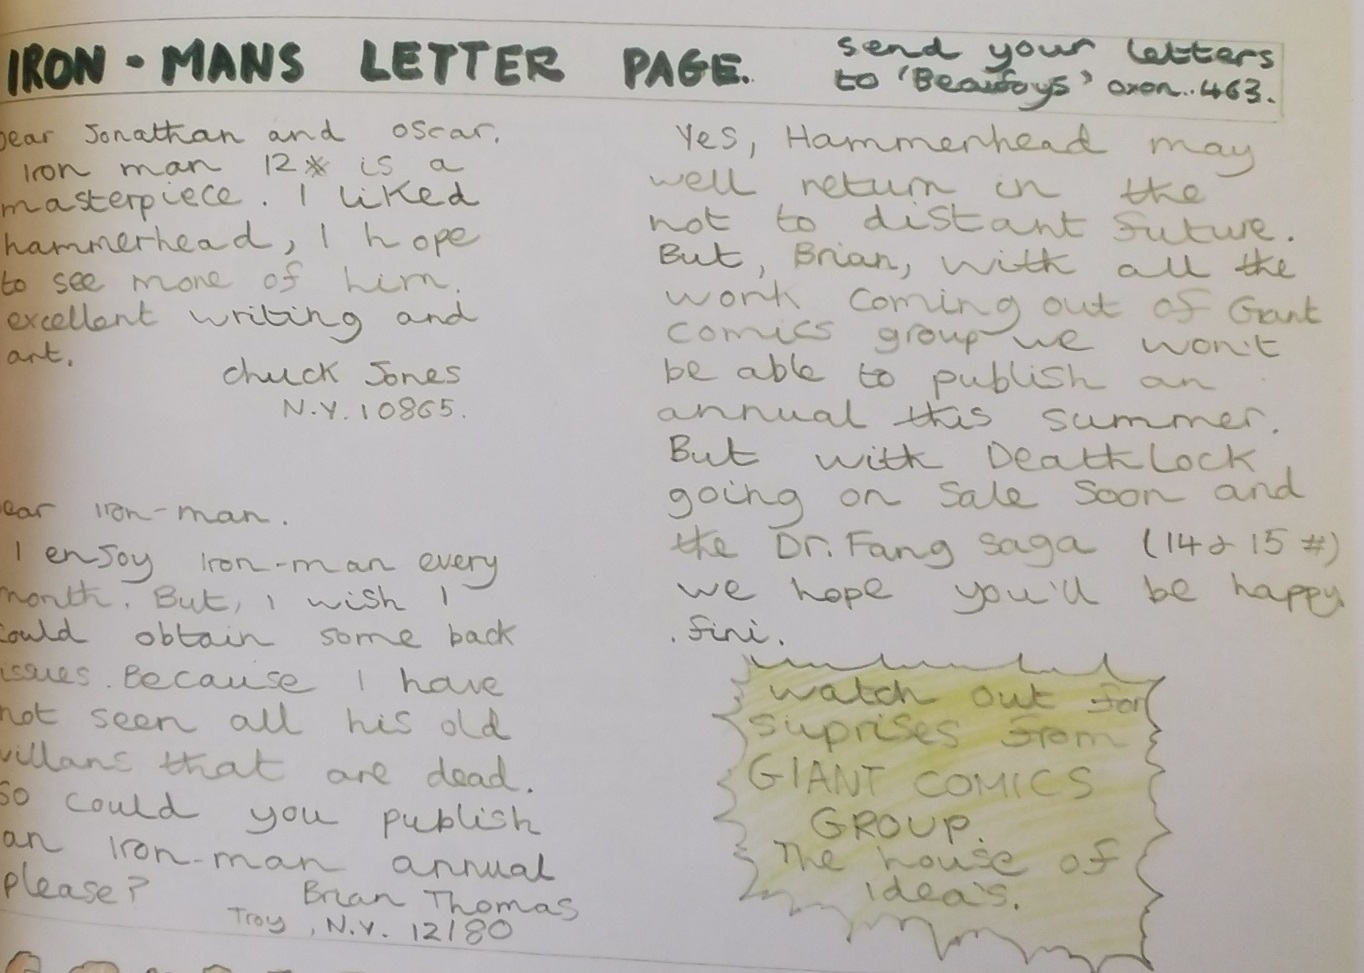 IRON-MANS LETTER PAGE.
send your letters
to 'Beaufoys' oxon..463.
Dear Jonathan and oscar.
Iron man 12* is a
masterpiece. I liked
hammerhead, I hope
to see more of him.
excellent writing and
art.
chuck Jones
N.Y. 10865.
ear iron-man.
I enjoy iron-man every
month. But, I wish I
could obtain some back
issues. Because I have
not seen all his old
villans that are dead.
so could you publish
an iron-man annual
please?
Brian Thomas
Troy, N.Y. 12180
Yes, Hammerhead may
well return in the
not to distant future.
But, Brian, with all the
work coming out of Giant
comics group we won't
be able to publish an
annual this summer.
But with Deathlock
going on sale soon and
the Dr. Fang saga (14 & 15 #)
we hope you'll be happy
. fini.
watch out for
suprises from
GIANT COMICS
GROUP.
The house of
idea's.